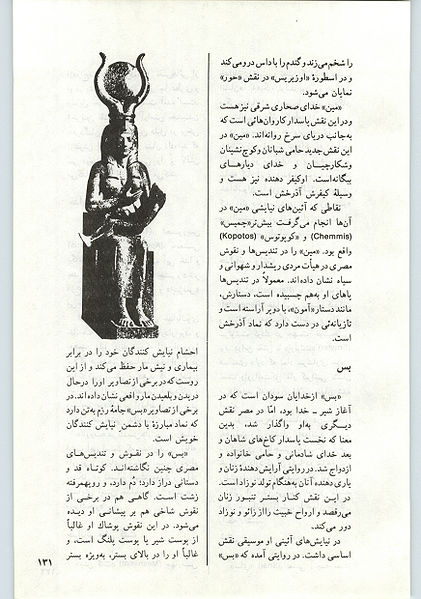 را شخم می‌زند و گندم را با داس درو می‌کند
و در اسطورهٔ «اوزیریس» در نقش «حور»
نمایان می‌شود.
«مین» خدای صحاری شرقی نیز هست
و در این نقش پاسدار کاروان‌هائی است که
به‌جانب دریای سرخ روانه‌اند. «مین» در
این نقش جدید حامی شبانان و کوچ‌نشینان
وشکارچیان و خدای دیارهای
بیگانه‌است. اوکیفر دهنده نیز هست و
وسیلهٔ کیفرش آذرخش است.
نقاطی که آئین‌های نیایشی «مین» در
آن‌ها انجام می‌گرفت بیش‌تر«چمیس»
(Chemmis) و «کوپوتوس» (Kopotos)
واقع بود. «مین» را در تندیس‌ها و نقوش
مصری در هیأت مردی ریشدار و شهوانی و
سیاه نشان داده‌اند. معمولاً در تندیس‌ها
پاهای او به‌هم چسبیده است، دستارش،
مانند دستار «آمون»، با دو پر آراسته است و
تازیانه‌ئی در دست دارد که نماد آذرخش
است.
بس
«بس» ازخدایان سودان است که در
آغاز شیر ــ خدا بود، امّا در مصر نقش
دیگری به‌او واگذار شد، بدین
معنا که نخست پاسدار کاخ‌های شاهان و
بعد خدای شادمانی و حامی خانواده و
ازدواج شد. درروایتی آرایش‌دهندهٔ زنان و
یاری دهنده آنان به‌هنگام تولد نوزاد است.
در این نقش کنار بستر تنبور زنان
می‌رقصد و ارواح خبیث رااز زائو و نوزاد
دور می‌کند.
در نیایش‌های آئینی او موسیقی نقش
اساسی داشت. در روایتی آمده که «بس»
احشام نیایش کنندگان خود را در برابر
بیماری و نیش مار حفظ می‌کند و از این
روست که در برخی از تصاویر اورا درحال
دریدن و بلعیدن مار واقعی نشان داده‌اند. در
برخی از تصاویر «بس» جامهٔ رزم به‌تن دارد
که نماد مبارزهٔ با دشمن نیایش کنندگان
خویش است.
«بس» را در نقوش و تندیس‌های
مصری چنین نگاشته‌اند. کوتاه قد و
دستانی دراز دارد؛ دُم دارد، و رویهمرفته
زشت است. گاهی هم در برخی از
نقوش شاخی هم بر پیشانی او دیده
می‌شود. در این نقوش پوشاک او غالباً
از پوست شیر یا پوست پلنگ است، و
غالباً او را در بالای بستر، به‌ویژه بستر
۱۳۱